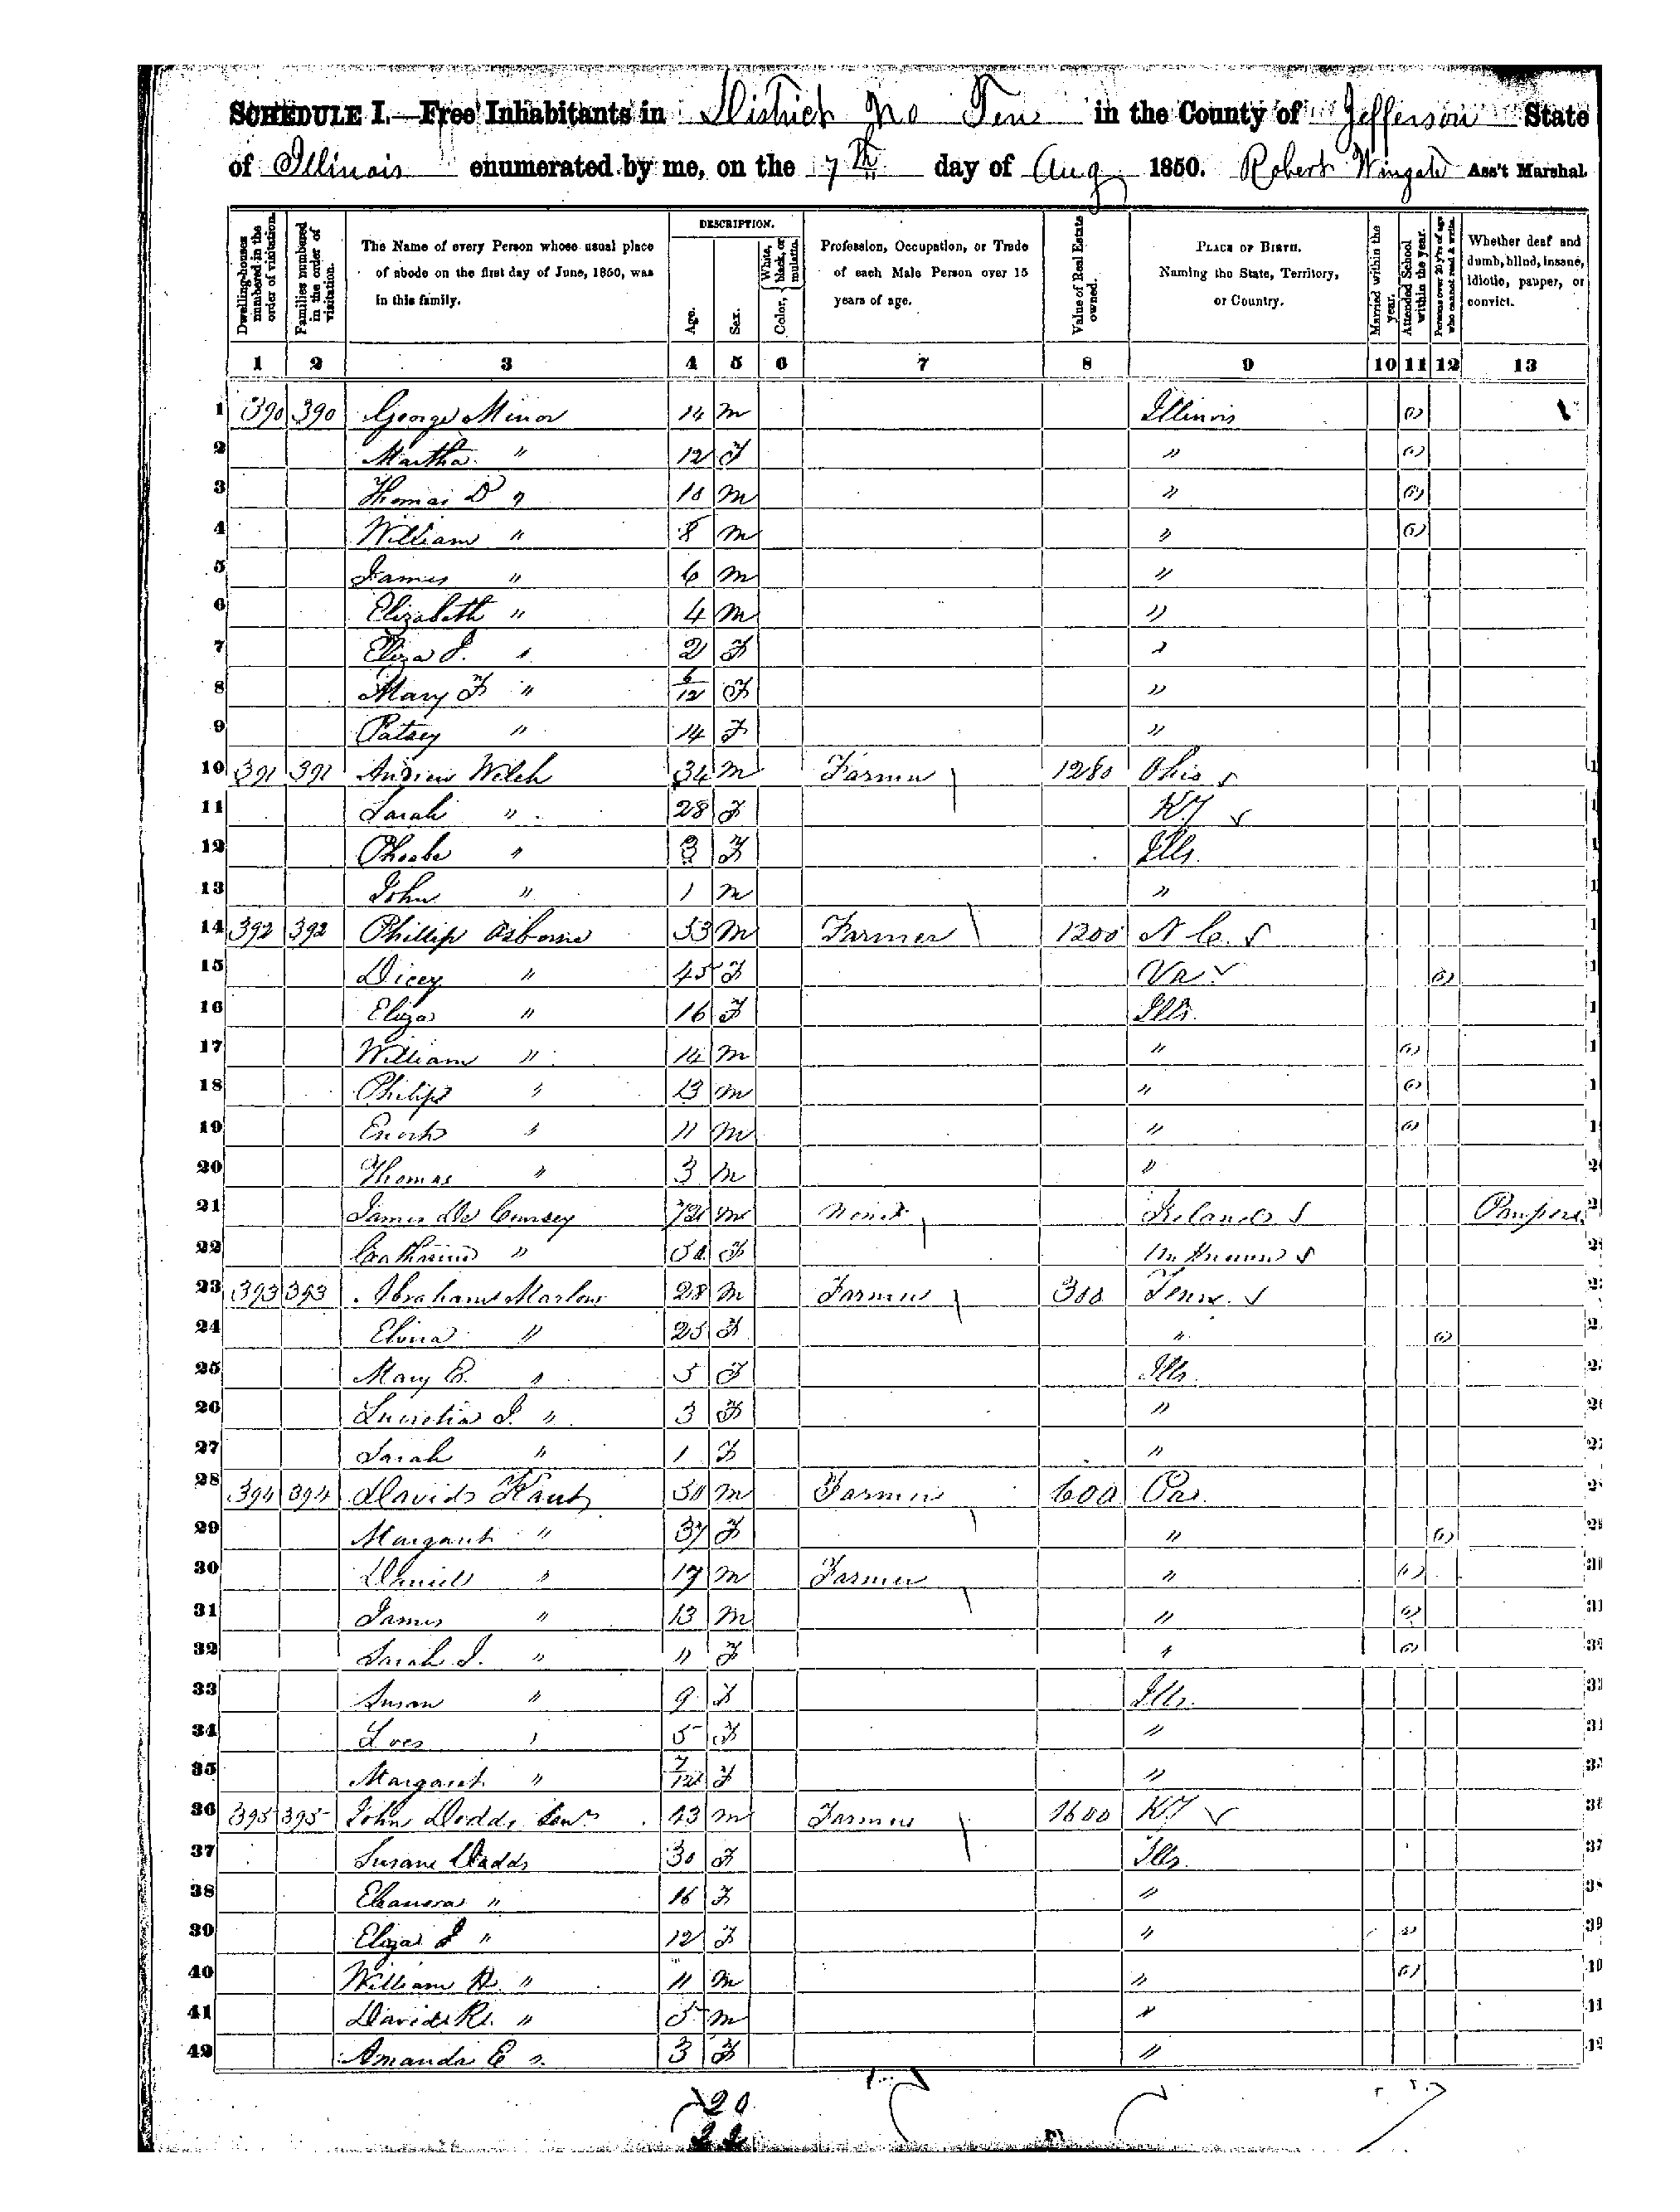 SCHEDULE I.—Free Inhabitants in District No Ten in the County of Jefferson State
of Illinois enumerated by me, on the 7th day of Aug 1850. Robert Wingate Ass't Marshal.
Dwelling-houses numbered in the order of visitation.
Families numbered in the order of visitation.
The Name of every Person whose usual place of abode on the first day of June, 1850, was in this family.
DESCRIPTION.
Age.
Sex.
Color, White, black, or mulatto.
Profession, Occupation, or Trade of each Male Person over 15 years of age.
Value of Real Estate owned.
PLACE OF BIRTH. Naming the State, Territory, or Country.
Married within the year.
Attended School within the year.
Persons over 20 y'rs of age who cannot read & write.
Whether deaf and dumb, blind, insane, idiotic, pauper, or convict.
1 2 3 4 5 6 7 8 9 10 11 12 13
1 390 390 George Minor 14 m Illinois (1)
2 Martha " 12 F " (1)
3 Thomas D " 10 m " (1)
4 William " 8 m " (1)
5 James " 6 m "
6 Elizabeth " 4 m "
7 Eliza J. " 2 F "
8 Mary F " 6/12 F "
9 Patsey " 14 F "
10 391 391 Andrew Welch 34 m Farmer 1280 Ohio
11 Sarah " 28 F KY
12 Phoebe " 3 F Ills.
13 John " 1 m "
14 392 392 Phillip Osborne 53 m Farmer 1200 N C.
15 Dicey " 45 F Va (1)
16 Eliza " 16 F Ills.
17 William " 14 m " (1)
18 Philip " 13 m " (1)
19 Enoch " 11 m " (1)
20 Thomas " 3 m "
21 James De Cunsey m None Ireland Pauper
22 Catharine " F Unknown
23 393 393 Abraham Marlow 28 m Farmer 300 Tenn.
24 Elvira " 25 F " (1)
25 Mary E. " 5 F Ills.
26 Lucretia J. " 3 F "
27 Sarah " 1 F "
28 394 394 David m Farmer 600 Pa.
29 Margaret " 37 F " (1)
30 Daniel " 17 m Farmer " (1)
31 James " 13 m " (1)
32 Sarah J. " 11 F " (1)
33 Susan " 9 F Ills.
34 " 5 F "
35 Margaret " 7/12 F "
36 395 395 John Dodds Senr 43 m Farmer 1600 KY
37 Susane Dodds 30 F Ills.
38 Eleanora " 16 F "
39 Eliza J " 12 F " (1)
40 William " 11 m " (1)
41 David R. " 5 m "
42 Amanda E " 3 F "
20
22